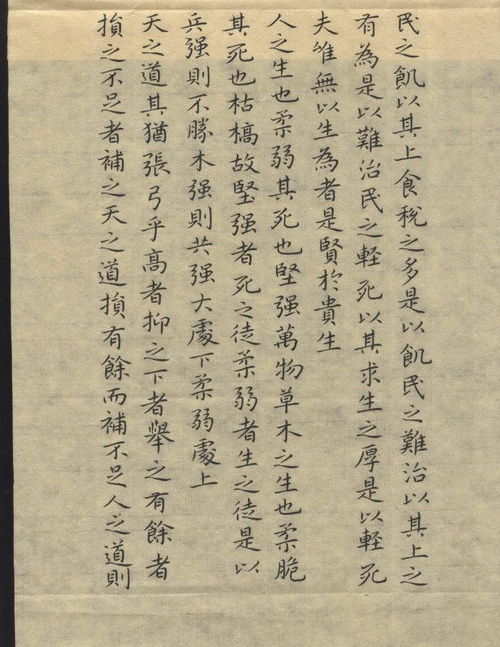 民之飢以其上食税之多是以飢民之難治以其上之
有為是以難治民之軽死以其求生之厚是以軽死
夫唯無以生為者是賢於貴生
人之生也柔弱其死也堅强萬物草木之生也柔脆
其死也枯槁故堅强者死之徒柔弱者生之徒是以
兵强則不勝木强則共强大處下柔弱處上
天之道其猶張弓乎高者抑之下者舉之有餘者
損之不足者補之天之道損有餘而補不足人之道則